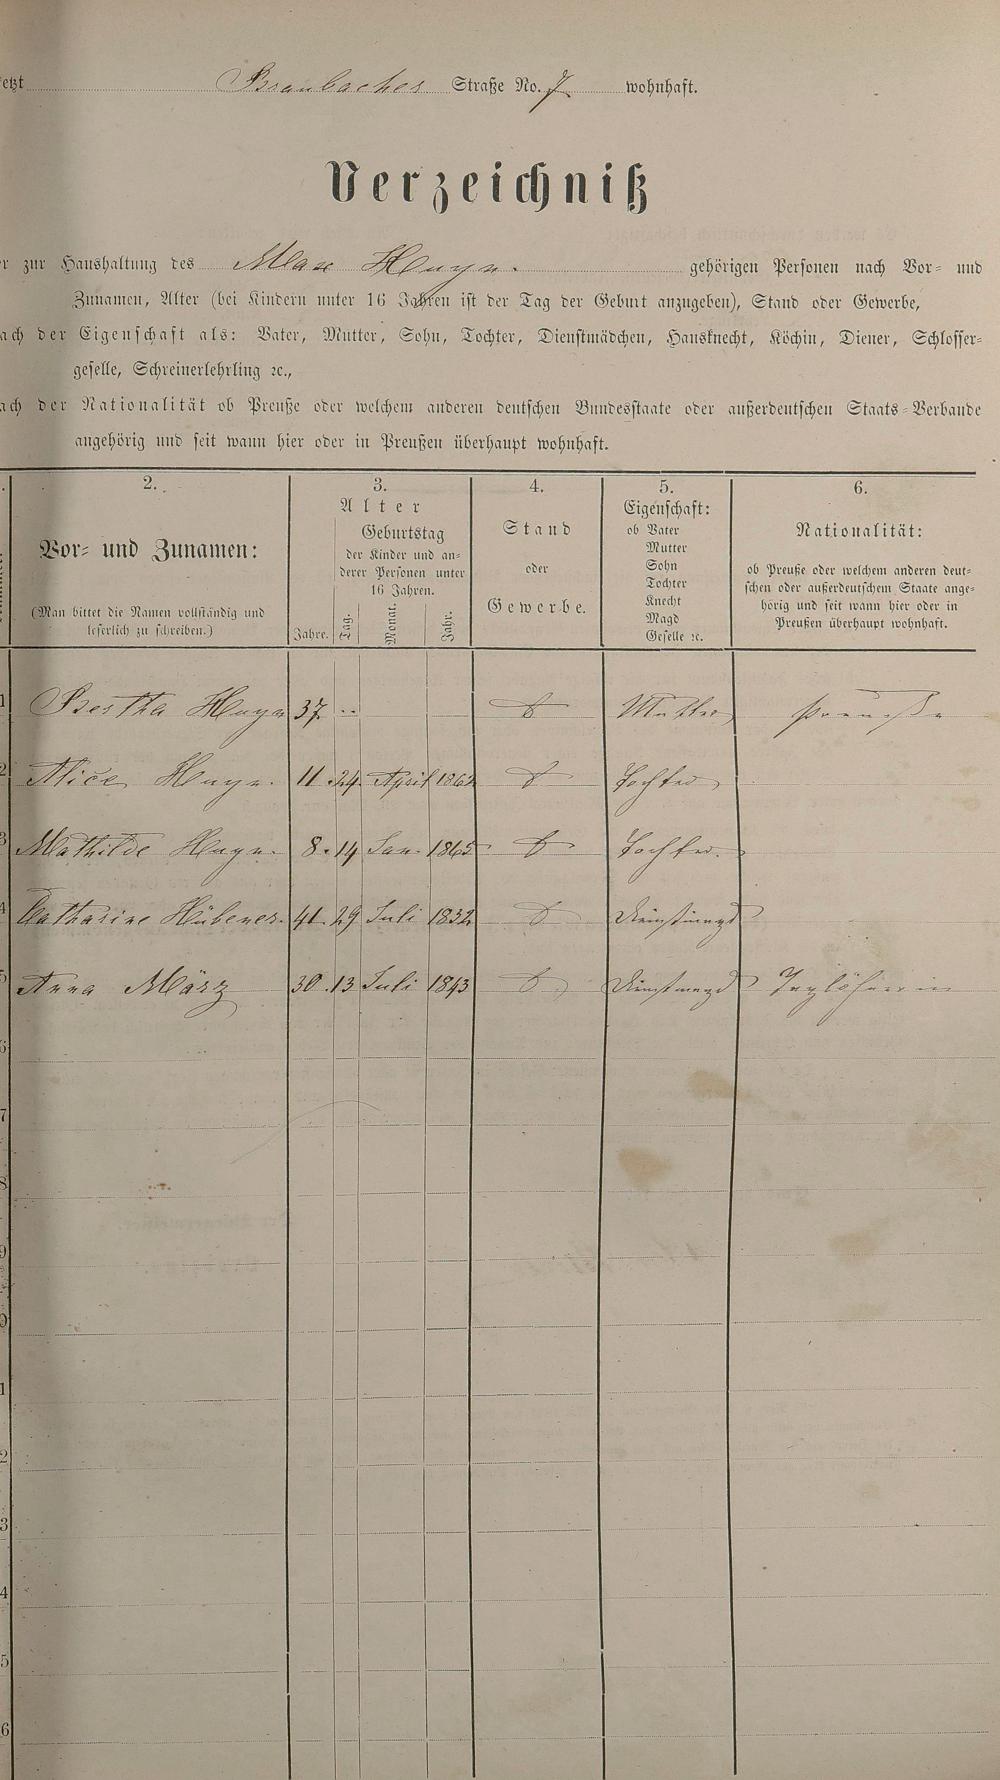 etzt Braubacher Straße No. 7 wohnhaft.
Verzeichniß
er zur Haushaltung des Max Huyn. gehörigen Personen nach Vor- und
Zunamen, Alter (bei Kindern unter 16 Jahren ist der Tag der Geburt anzugeben), Stand oder Gewerbe,
ach der Eigenschaft als: Vater, Mutter, Sohn, Tochter, Dienstmädchen, Hausknecht, Köchin, Diener, Schlosser-
geselle, Schreinerlehrling ꝛc.,
ach der Nationalität ob Preuße oder welchem anderen deutschen Bundesstaate oder außerdeutschen Staats-Verbande
angehörig und seit wann hier oder in Preußen überhaupt wohnhaft.
2. 3. 4. 5. 6.
Vor- und Zunamen:
(Man bittet die Namen vollständig und
leserlich zu schreiben.)
Alter
Jahre.
Geburtstag
der Kinder und an-
derer Personen unter
16 Jahren.
Tag. Monat. Jahr.
Stand
oder
Gewerbe.
Eigenschaft:
ob Vater
Mutter
Sohn
Tochter
Knecht
Magd
Geselle ꝛc.
Nationalität:
ob Preuße oder welchem anderen deut-
schen oder außerdeutschem Staate ange-
hörig und seit wann hier oder in
Preußen überhaupt wohnhaft.
1 Bertha Huyn 37. Mutter Preuße
2 Alice Huyn. 11. 24. April 1862 Tochter
3 Mathilde Huyn. 8. 14 Jan. 1865 Tochter.
4 Catharine Hübener. 41. 29 Juli 1832 Dienstmagd
5 Anna März 30. 13 Juli 1843 Dienstmagd Taglöhnerin
6
7
8
9
0
1
2
3
4
5
6